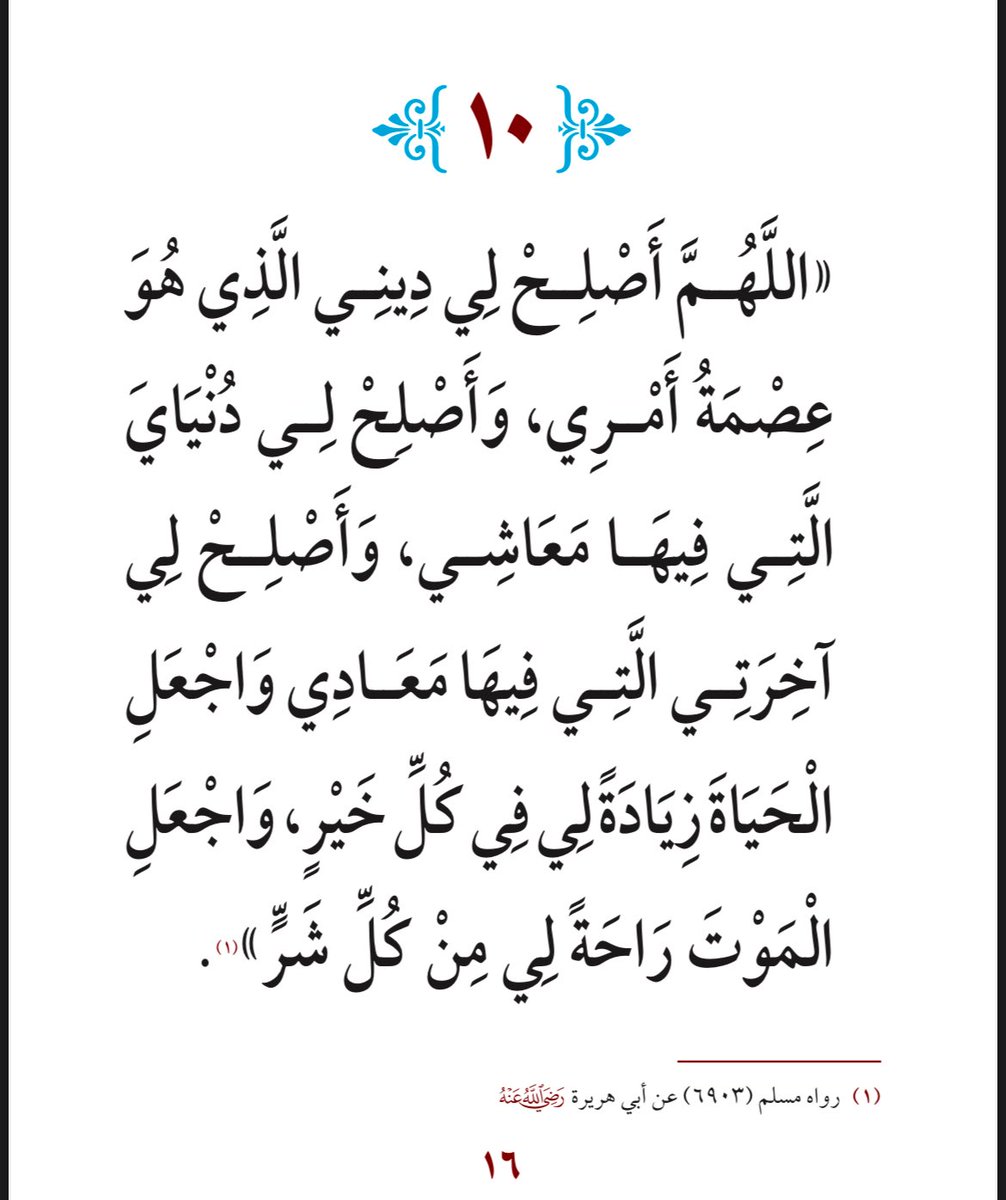 ١٠
«اللَّهُمَّ أَصْلِحْ لِي دِينِي الَّذِي هُوَ
عِصْمَةُ أَمْرِي، وَأَصْلِحْ لِي دُنْيَايَ
الَّتِي فِيهَا مَعَاشِي، وَأَصْلِحْ لِي
آخِرَتِي الَّتِي فِيهَا مَعَادِي وَاجْعَلِ
الْحَيَاةَ زِيَادَةً لِي فِي كُلِّ خَيْرٍ، وَاجْعَلِ
الْمَوْتَ رَاحَةً لِي مِنْ كُلِّ شَرٍّ»(١).
(١) رواه مسلم (٦٩٠٣) عن أبي هريرة رَضِيَ اللَّهُ عَنْهُ
١٦